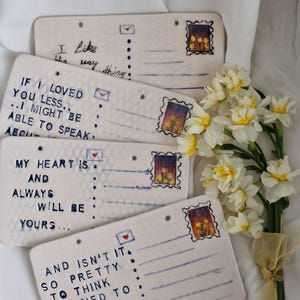 I like
the way
thing
IF I LOVED
YOU LESS..
..I MIGHT BE
ABLE TO SPEAK
ABOUT
MY HEART IS
AND
ALWAYS
WILL BE
YOURS...
AND ISN'T IT
SO PRETTY
TO THINK
TO